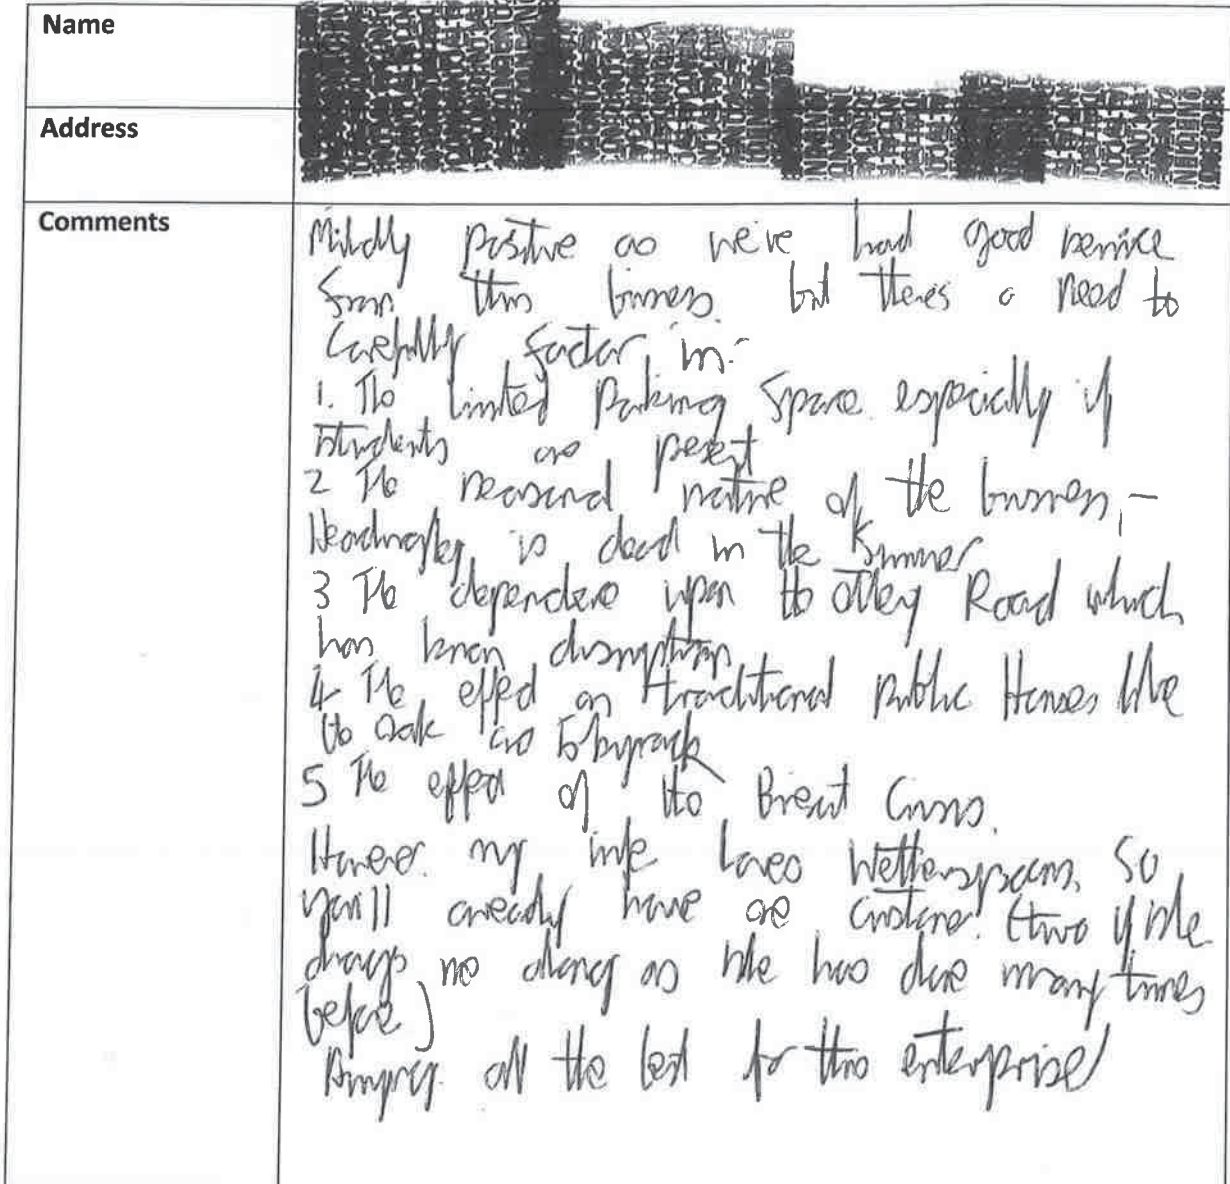 Name
Address
Comments
Mildly positive as we've had good service
from this business but there's a need to
carefully factor in:-
1. The limited parking space especially if
students are present
2 The seasonal nature of the business, -
Headingley is dead in the summer
3 The dependence upon the Otley Road which
has known disruption
4 The effect on traditional public Houses like
the Oak and Skyrack
5 The effect of the Brexit Crisis.
However my wife loves Wetherspoons, so
you'll already have one customer! (two if she
drags me along as she has done many times
before)
all the best for this enterprise!